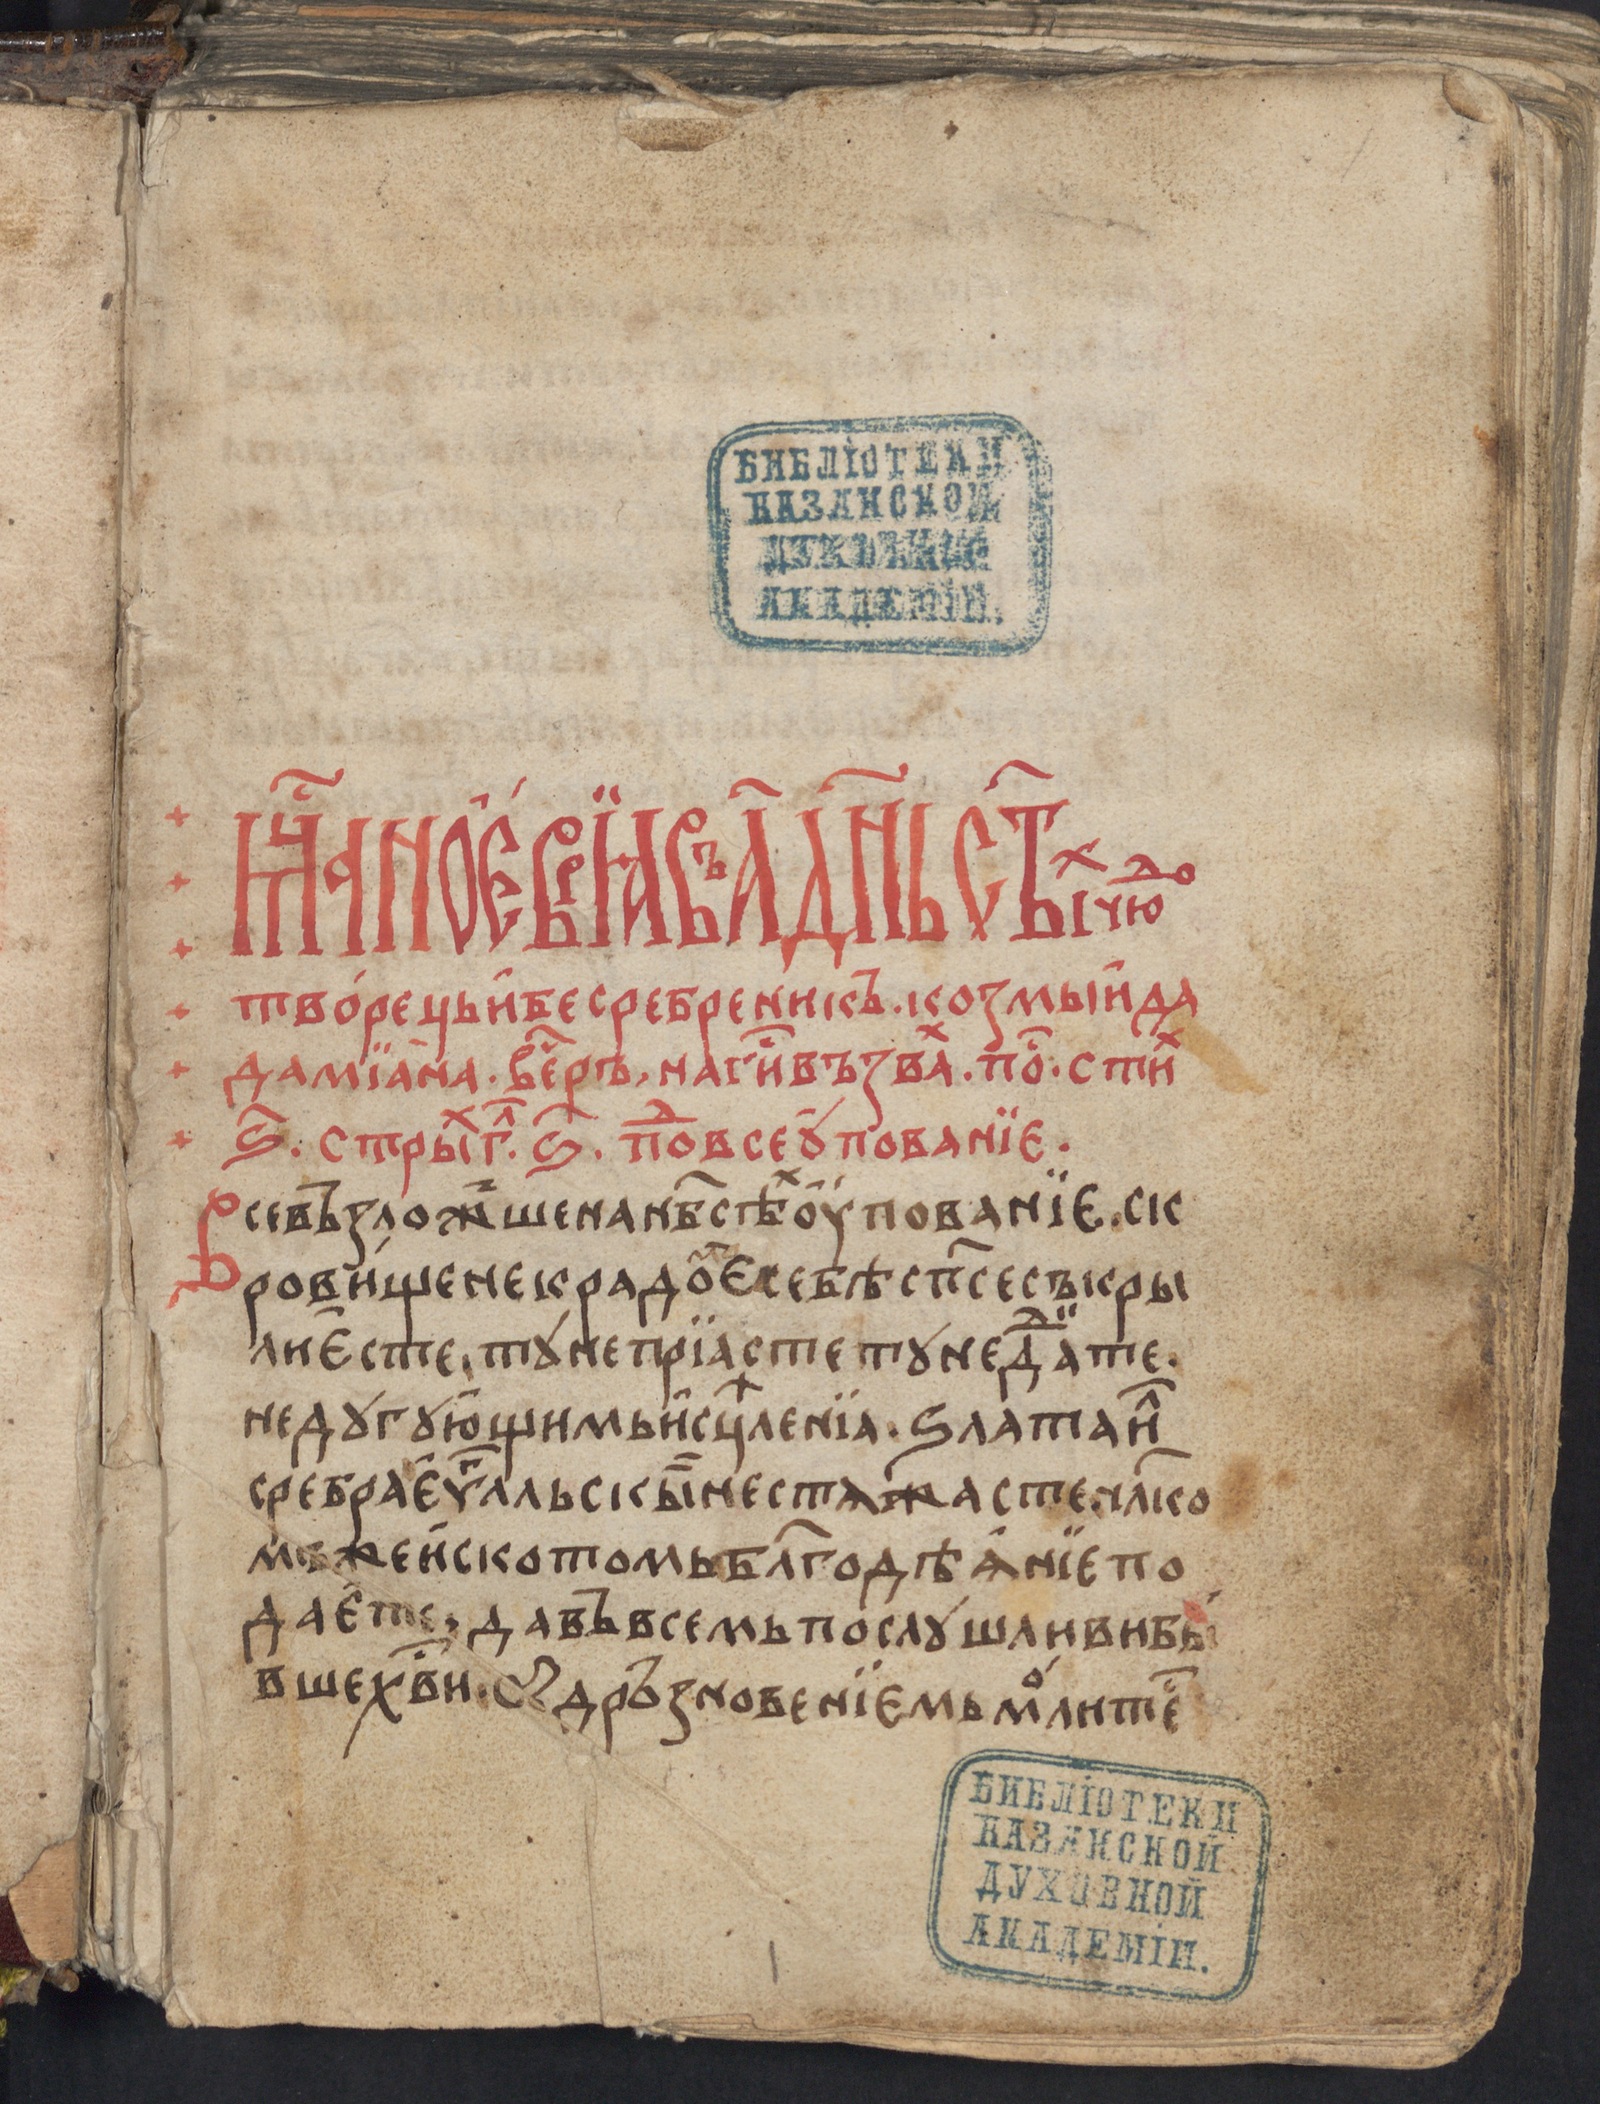 БИБЛІОТЕКИ
КАЗАНСКОЙ
ДУХОВНОЙ
АКАДЕМІИ.
мⷭ҇ца ноеврїа въ а҃ д҃нь ст҃ыⷯ чюдо
тво́рець и҆ бесребреникъ. козмы и҆ да
дамїа҆на. веⷱ҇ръ, на гⷭ҇и въззваⷯ. поⷭ҇. стиⷯ
ѕ҃. стрыⷯ гл҃. ѕ҃. поⷣ все ꙋпованїе.
Все възложⷲ҇ше на нб҃сѣⷯ оу҆пованїе. ск
ровище некрадоⷨ҇ѐ себѣ сп҃се съкры
лиѐсте, тꙋне прїасте тꙋне даⷣате.
недꙋгꙋю҆щимь и҆сцѣленїа. ѕлата и҆л
сребра е҆ѵⷢ҇лльскы не стѧжасте. чл҃ко
мь же и҆ скотомь бл҃годѣѧнїе по
дае҆те. да въ всемь послꙋшливи бы
вше хв҃и. Ѿ дръзновенїемь молитеⷭ҇
БИБЛІОТЕКИ
КАЗАНСКОЙ
ДУХОВНОЙ
АКАДЕМІИ.